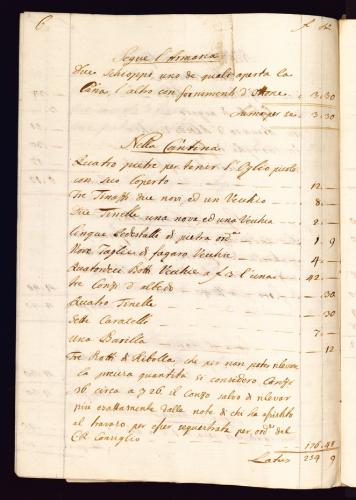 6 f Xr
Segue l'Armaria
Due Schioppi, uno de quali aperta la
Cana, l'altro con fornimenti d'Ottone 3.30
Summa per se 3.30
Nella Cantina
Quatro pietre per tener l'Oglio
con suo Coperto 12.-
Tre Tinozzi due novi ed un Vecchio 8.-
Due Tinelle una nova ed una Vechia 2.-
Cinque Pedestalli di pietra ord.ª 1.9
Nove Taglieri di fagaro Vechie 4.-
Quatordeci Botti Vecchie a f 3 l'una 42.-
Tre Conzi d'albedo -.30
Quatro Tinelle -.30
Sette Caratelli 7.-
Una Barilla -.12
Tre Botti di Ribolla che per non poter rilevare
la precisa quantità si considera Conzi
36 circa a f 26 il Conzo salvo di rilevar
più esattamente dalle note di chi ha assistito
al travaso per esser sequestrate per ord.e del
C.R. Consiglio 176.48
Latus 254 9